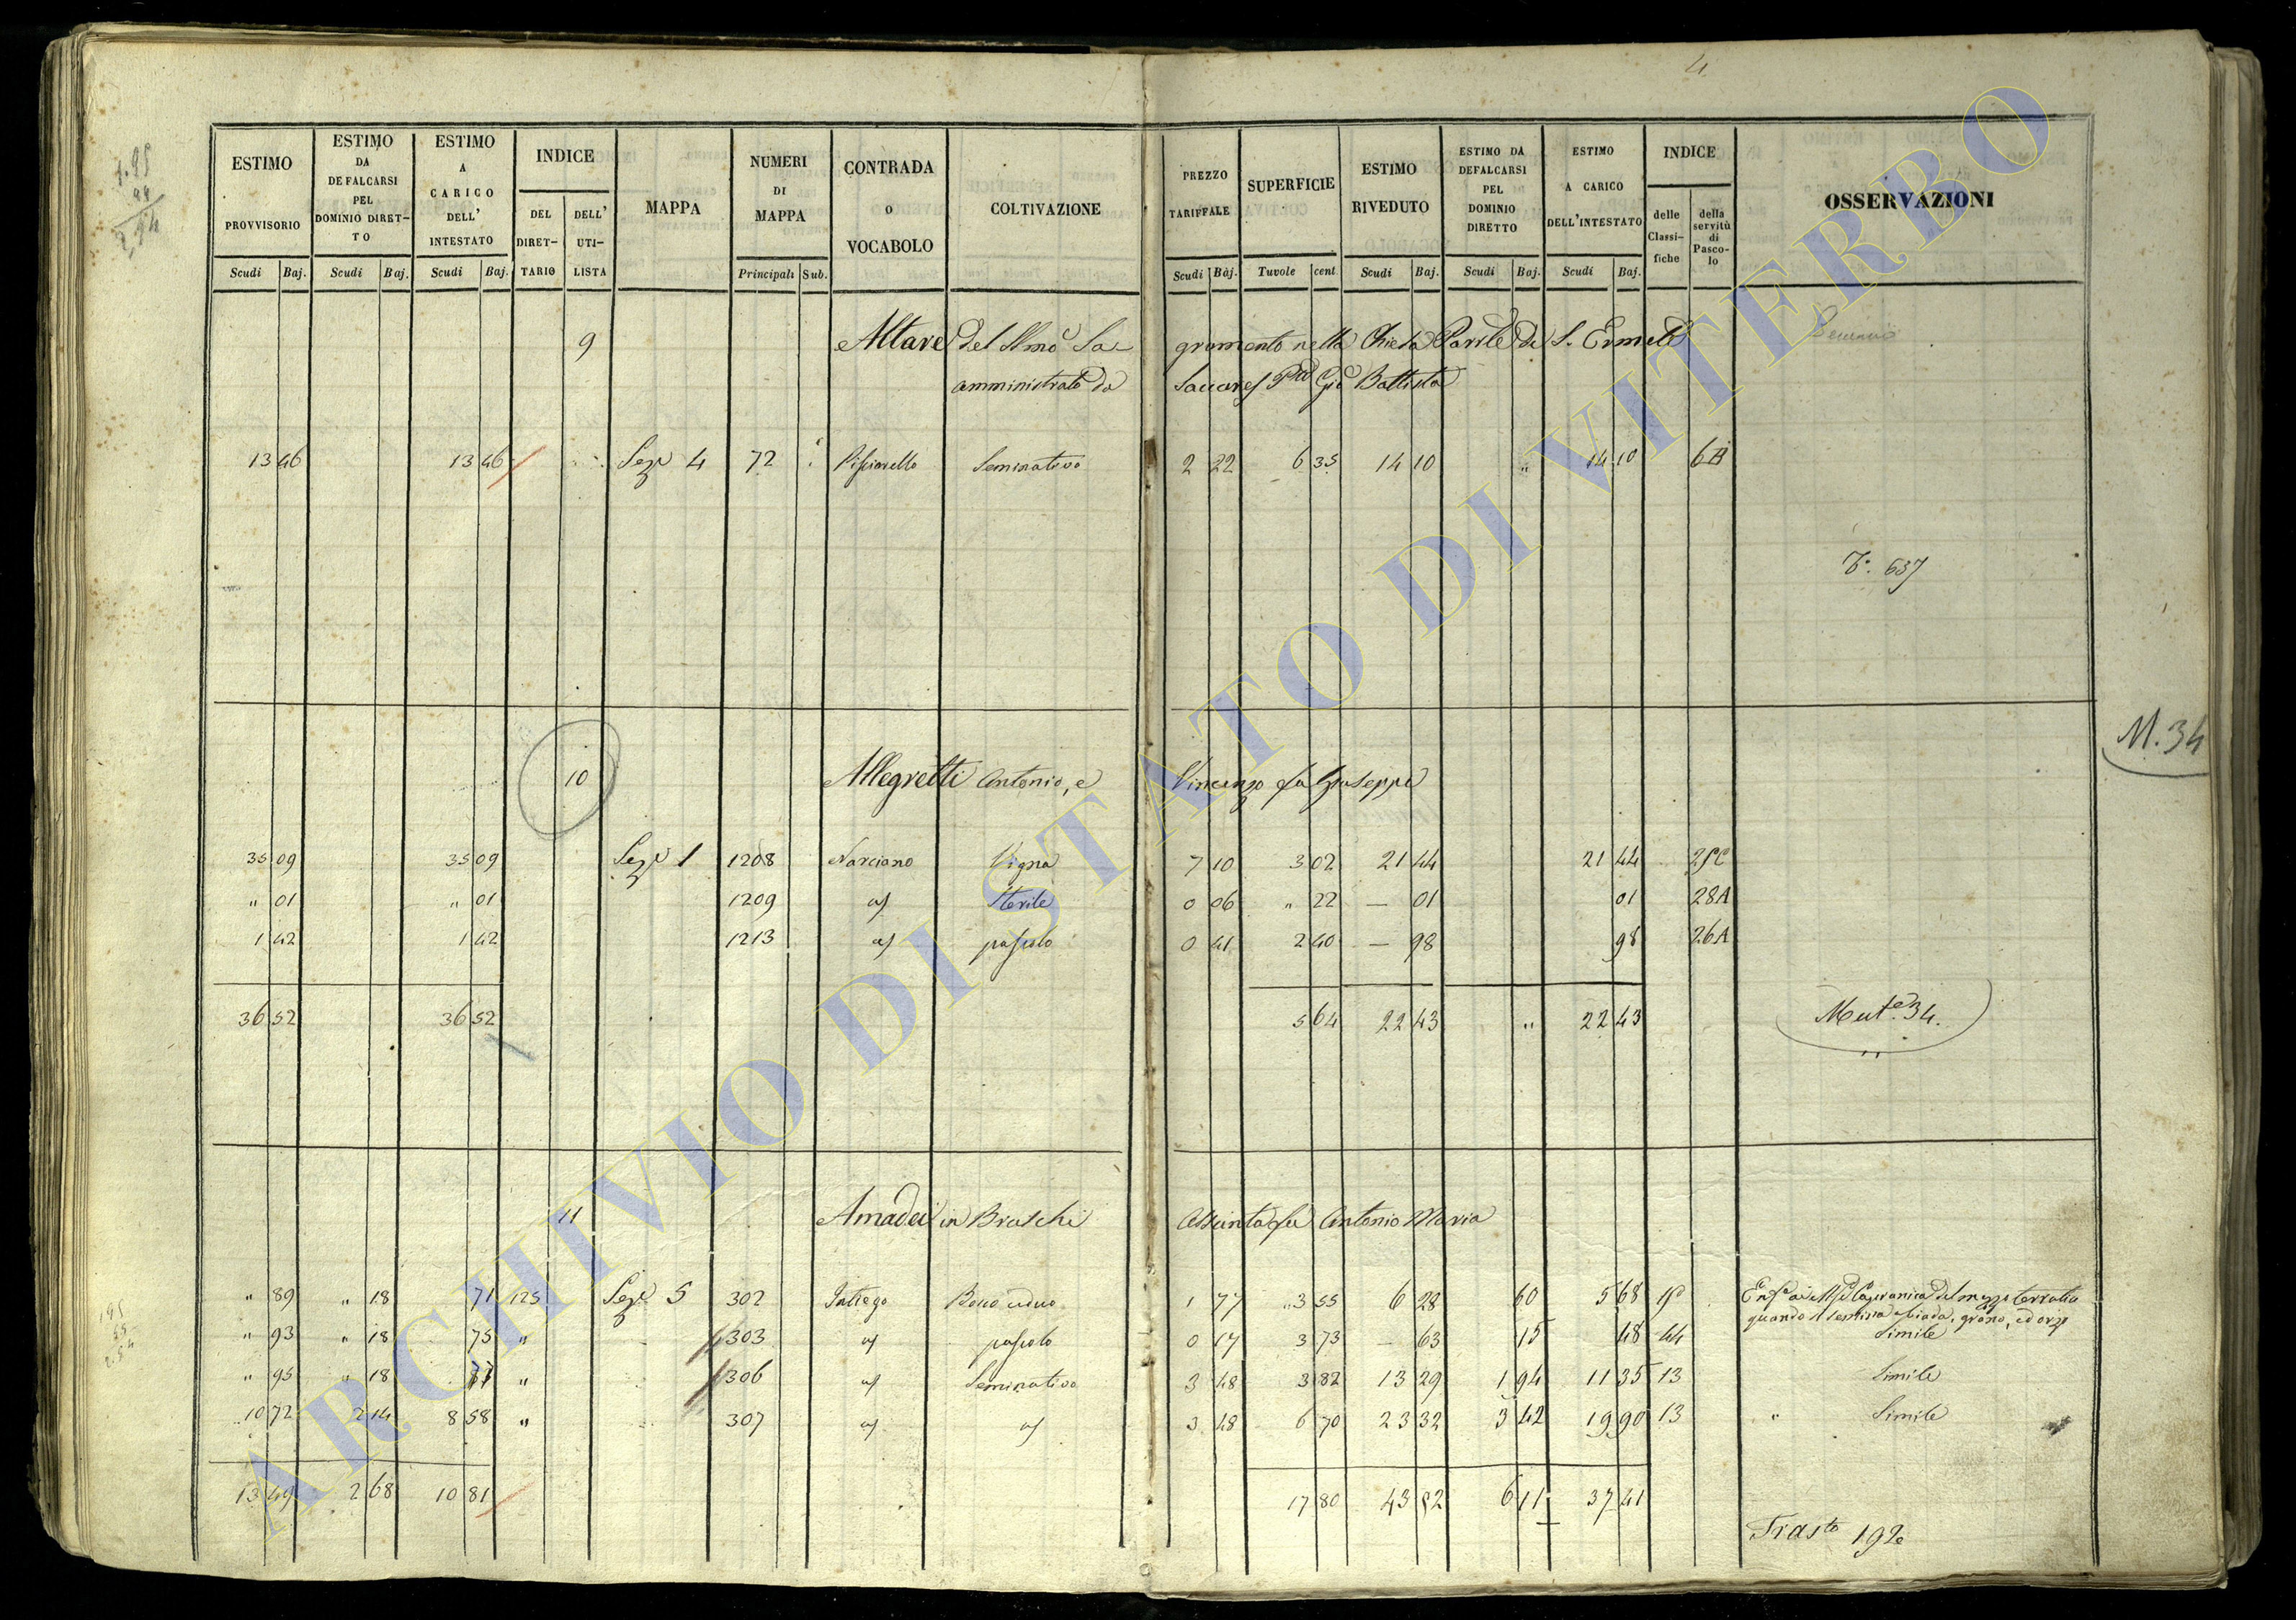 4
1.95
99
2,94
ESTIMO PROVVISORIO Scudi Baj.
ESTIMO DA DEFALCARSI PEL DOMINIO DIRET-TO Scudi Baj.
ESTIMO A CARICO DELL' INTESTATO Scudi Baj.
INDICE DEL DIRET-TARIO DELL' UTI-LISTA
MAPPA
NUMERI DI MAPPA Principali Sub.
CONTRADA o VOCABOLO
COLTIVAZIONE
PREZZO TARIFFALE Scudi Baj.
SUPERFICIE Tavole cent.
ESTIMO RIVEDUTO Scudi Baj.
ESTIMO DA DEFALCARSI PEL DOMINIO DIRETTO Scudi Baj.
ESTIMO A CARICO DELL'INTESTATO Scudi Baj.
INDICE delle Classi-fiche della servitù di Pasco-lo
OSSERVAZIONI
9 Altare del SSmo Sa= gramento nella Chiesa Parrle di S. Ermete
amministrato da Gio Battista
13 46 13 46 Seze 4 72 Pisciarello Seminativo 2 22 6 35 14 10 " 14 10 6A
637
M. 34
10 Allegretti Antonio, e Vincenzo fu Giuseppe
35 09 35 09 Seze 1 1208 Narciano Vigna 7 10 3 02 21 44 21 44 25C
" 01 " 01 1209 a/ Sterile 0 06 " 22 — 01 01 28A
1 42 1 42 1213 a/ pascolo 0 41 2 40 — 98 98 26A
36 52 36 52 5 64 22 43 " 22 43 Mute 34.
11 Amadei in Braschi Assunta fu Antonio Maria
" 89 " 18 71 125 Seze 5 302 Intiego Bosco ceduo 1 77 " 3 55 6 28 60 5 68 19 quando si semina a biada, grano, ed orzo
" 93 " 18 75 " 303 a/ pascolo 0 17 3 73 — 63 15 48 44 Simile
" 95 " 18 77 " 306 a/ Seminativo 3 48 3 82 13 29 1 94 11 35 13 Simile
10 72 2 14 8 58 " 307 a/ a/ 3 48 6 70 23 32 3 42 19 90 13 " Simile
13 49 2 68 10 81 17 80 43 52 6 11 37 41
Trasto 192
ARCHIVIO DI STATO DI VITERBO